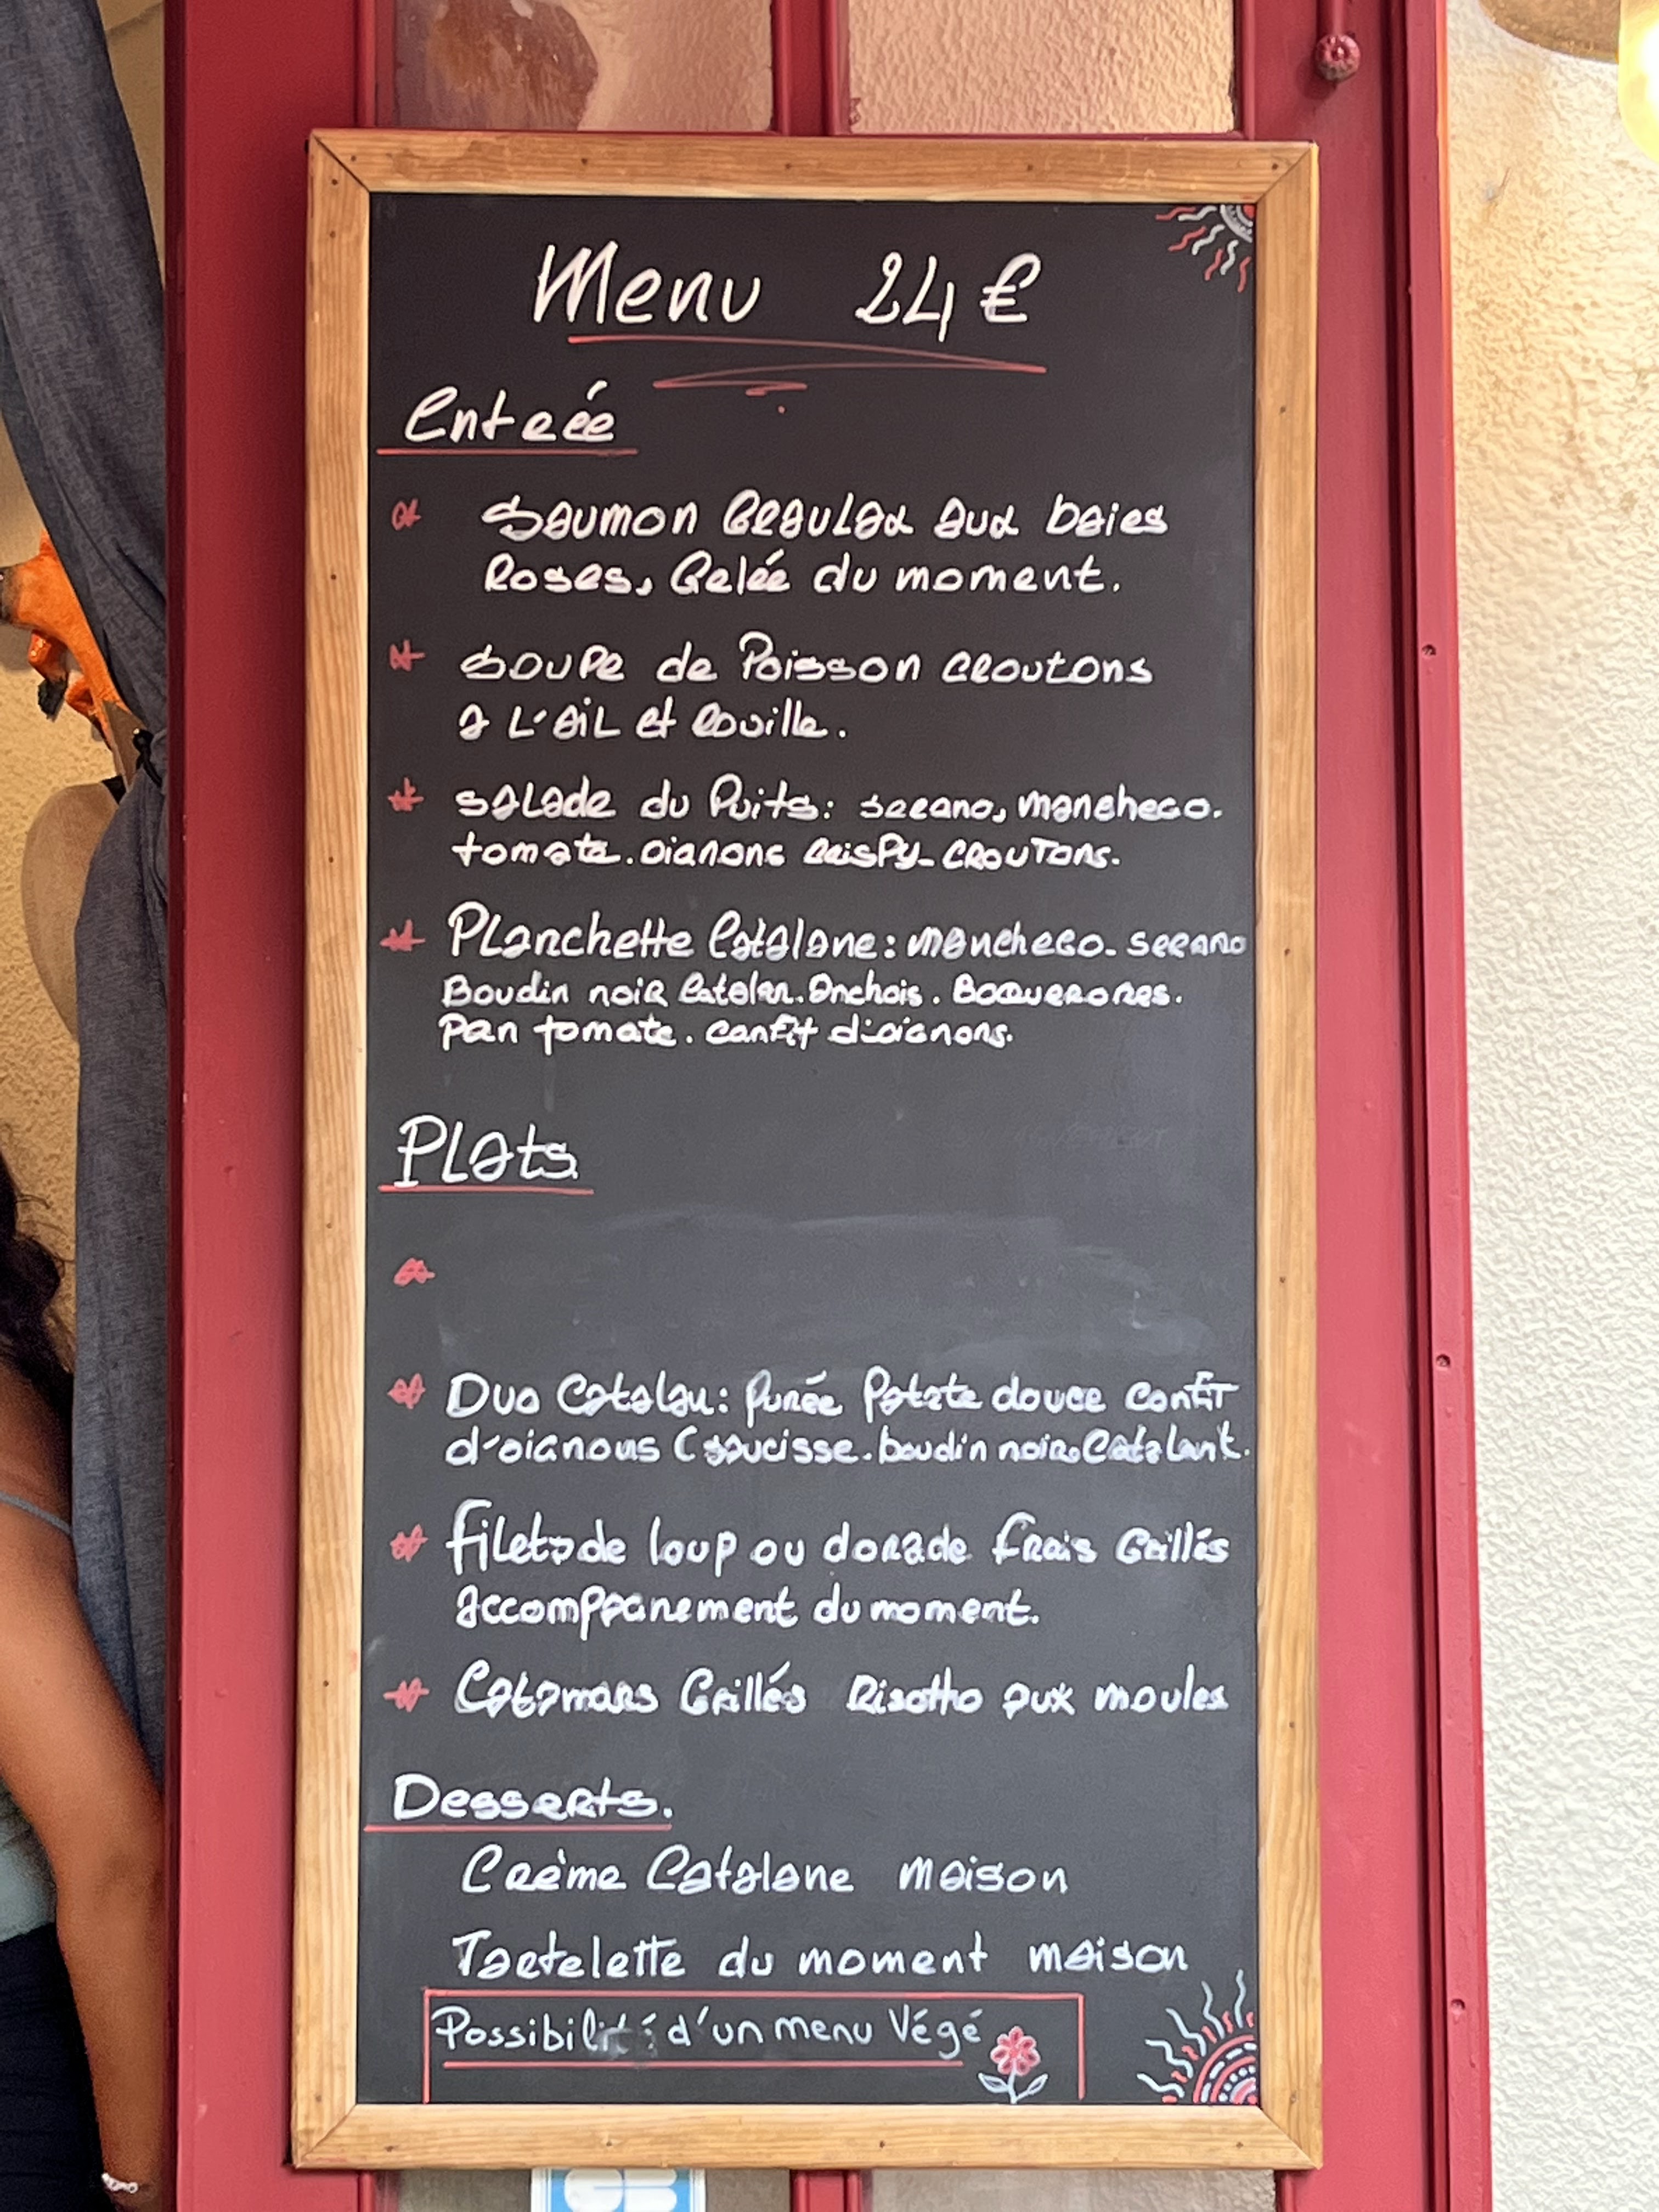 Menu 24€
Entrée
Saumon Gravlax aux baies
Roses, Gelée du moment.
Soupe de Poisson croutons
a L'aiL et Rouille.
Salade du Puits: serano, mancheco.
tomate. oignons crispy_croutons.
Planchette Catalane: mancheco. serano
Boudin noir Catalan. Anchois. Boquerones.
Pan tomate. confit d'oignons.
Plats
Duo Catalan: Purée Patate douce confit
d'oignons (saucisse. boudin noir Catalan.
filets de loup ou dorade frais Grillés
accompanement du moment.
Grillés Risotto aux moules
Desserts.
Crème Catalane maison
Tartelette du moment maison
Possibilité d'un menu Végé